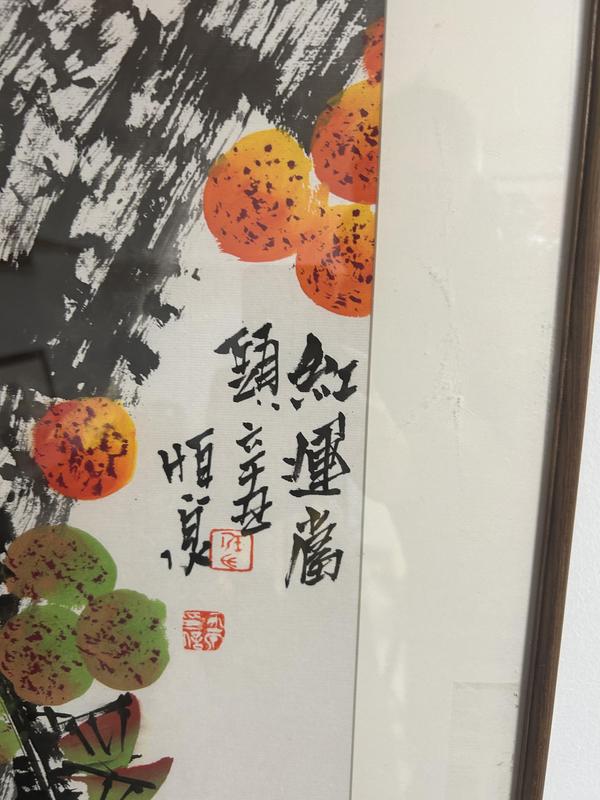 紅運當
頭 辛丑
恒